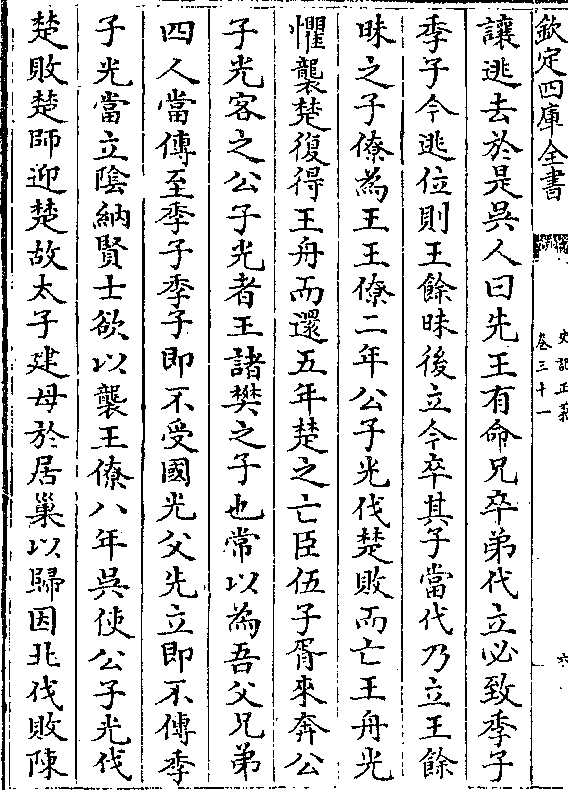 欽定四庫全書
史記正義
卷三十一
六
讓逃去於是吳人曰先王有命兄卒弟代立必致季子
季子今逃位則王餘昧後立今卒其子當代乃立王餘
昧之子僚為王王僚二年公子光伐楚敗而亡王舟光
懼襲楚復得王舟而還五年楚之亡臣伍子胥來奔公
子光客之公子光者王諸樊之子也常以為吾父兄弟
四人當傳至季子季子即不受國光父先立即不傳季
子光當立陰納賢士欲以襲王僚八年吳使公子光伐
楚敗楚師迎楚故太子建母於居巢以歸因北伐敗陳